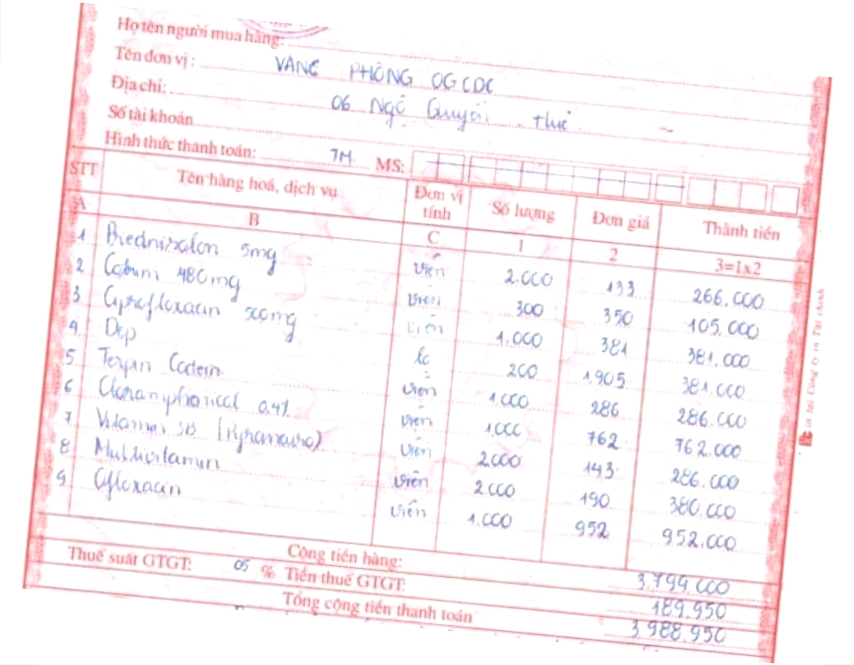 Họ tên người mua hàng:
Tên đơn vị: VĂNG PHÒNG OGCDC
Địa chỉ: 06 Ngô Quyền. Huế
Số tài khoản
Hình thức thanh toán: TM. MS:
STT Tên hàng hoá, dịch vụ Đơn vị tính Số lượng Đơn giá Thành tiền
A B C 1 2 3=1x2
1 Prednisolon 5mg viên 2.000 133 266.000
2 Cotrim 480mg viên 300 350 105.000
3 Ciprofloxacin 500mg viên 1.000 381 381.000
4 Dep lọ 200 1.905 381.000
5 Terpin Codein viên 1.000 286 286.000
6 Cloramphenicol 0.4% viên 1.000 762 762.000
7 Vitamin 3B viên 2000 143 286.000
8 Multivitamin viên 2.000 190 380.000
9 Ofloxacin viên 1.000 952 952.000
Cộng tiền hàng: 3.799.000
Thuế suất GTGT: 05 % Tiền thuế GTGT: 189.950
Tổng cộng tiền thanh toán 3.988.950